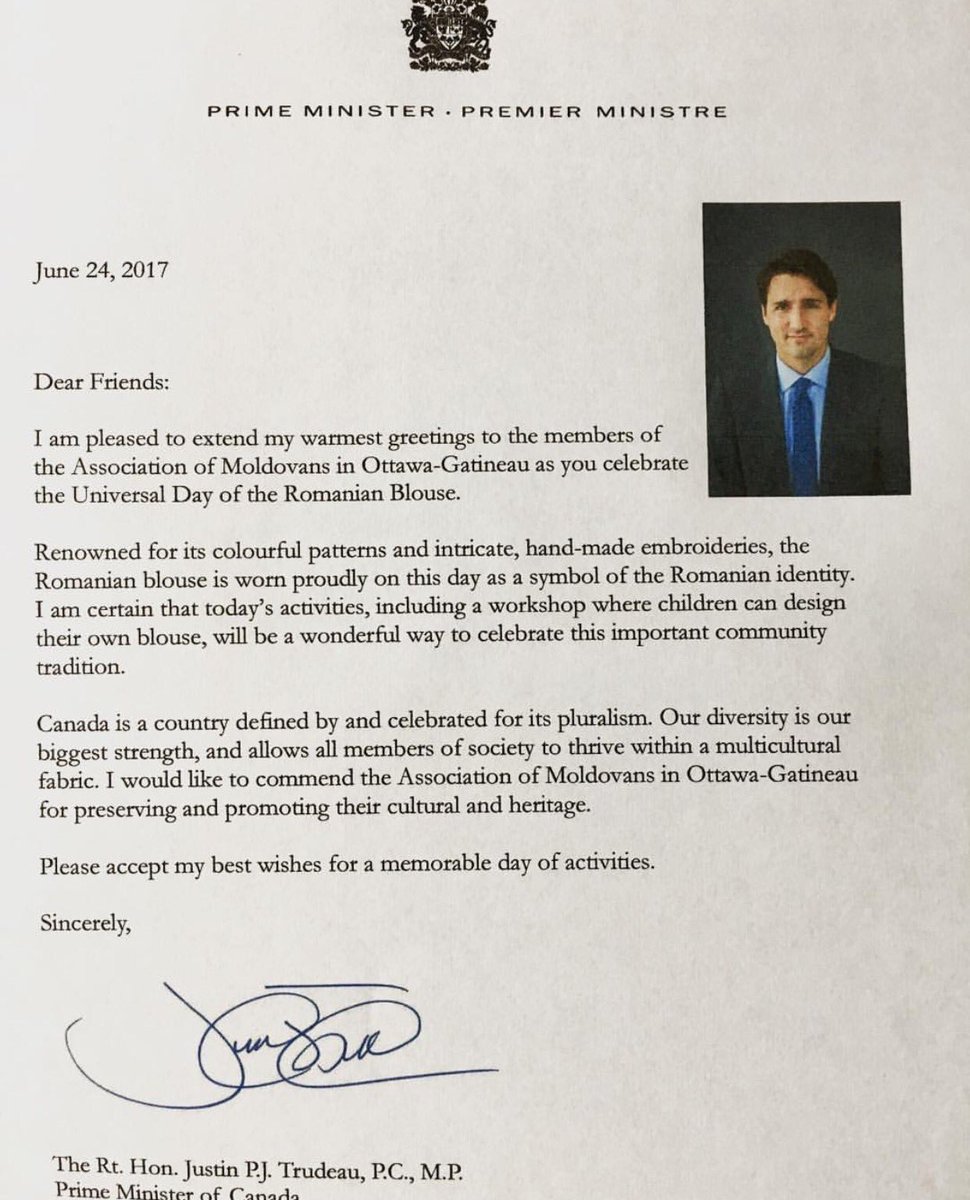 PRIME MINISTER · PREMIER MINISTRE
June 24, 2017
Dear Friends:
I am pleased to extend my warmest greetings to the members of
the Association of Moldovans in Ottawa-Gatineau as you celebrate
the Universal Day of the Romanian Blouse.
Renowned for its colourful patterns and intricate, hand-made embroideries, the
Romanian blouse is worn proudly on this day as a symbol of the Romanian identity.
I am certain that today's activities, including a workshop where children can design
their own blouse, will be a wonderful way to celebrate this important community
tradition.
Canada is a country defined by and celebrated for its pluralism. Our diversity is our
biggest strength, and allows all members of society to thrive within a multicultural
fabric. I would like to commend the Association of Moldovans in Ottawa-Gatineau
for preserving and promoting their cultural and heritage.
Please accept my best wishes for a memorable day of activities.
Sincerely,
The Rt. Hon. Justin P.J. Trudeau, P.C., M.P.
Prime Minister of Canada